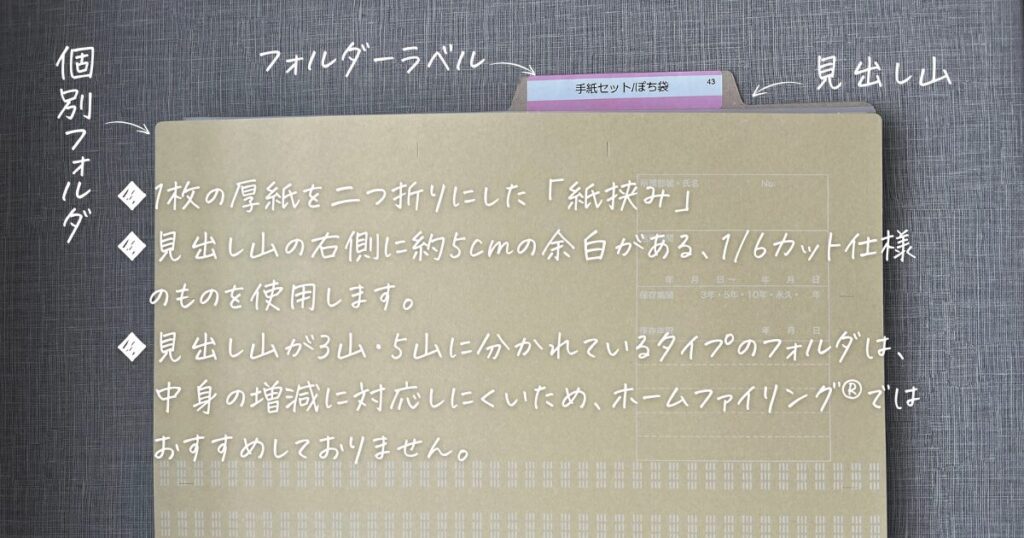 個別フォルダ
フォルダーラベル
見出し山
手紙セット/ぽち袋
43
◆1枚の厚紙を二つ折りにした「紙挟み」
◆見出し山の右側に約5cmの余白がある、1/6カット仕様
のものを使用します。
◆見出し山が3山・5山に分かれているタイプのフォルダは、
中身の増減に対応しにくいため、ホームファイリング®では
おすすめしておりません。
・氏名 No.
年 月 日~ 年 月 日
保存期間 3年・5年・10年・永久・ 年
年 月 日